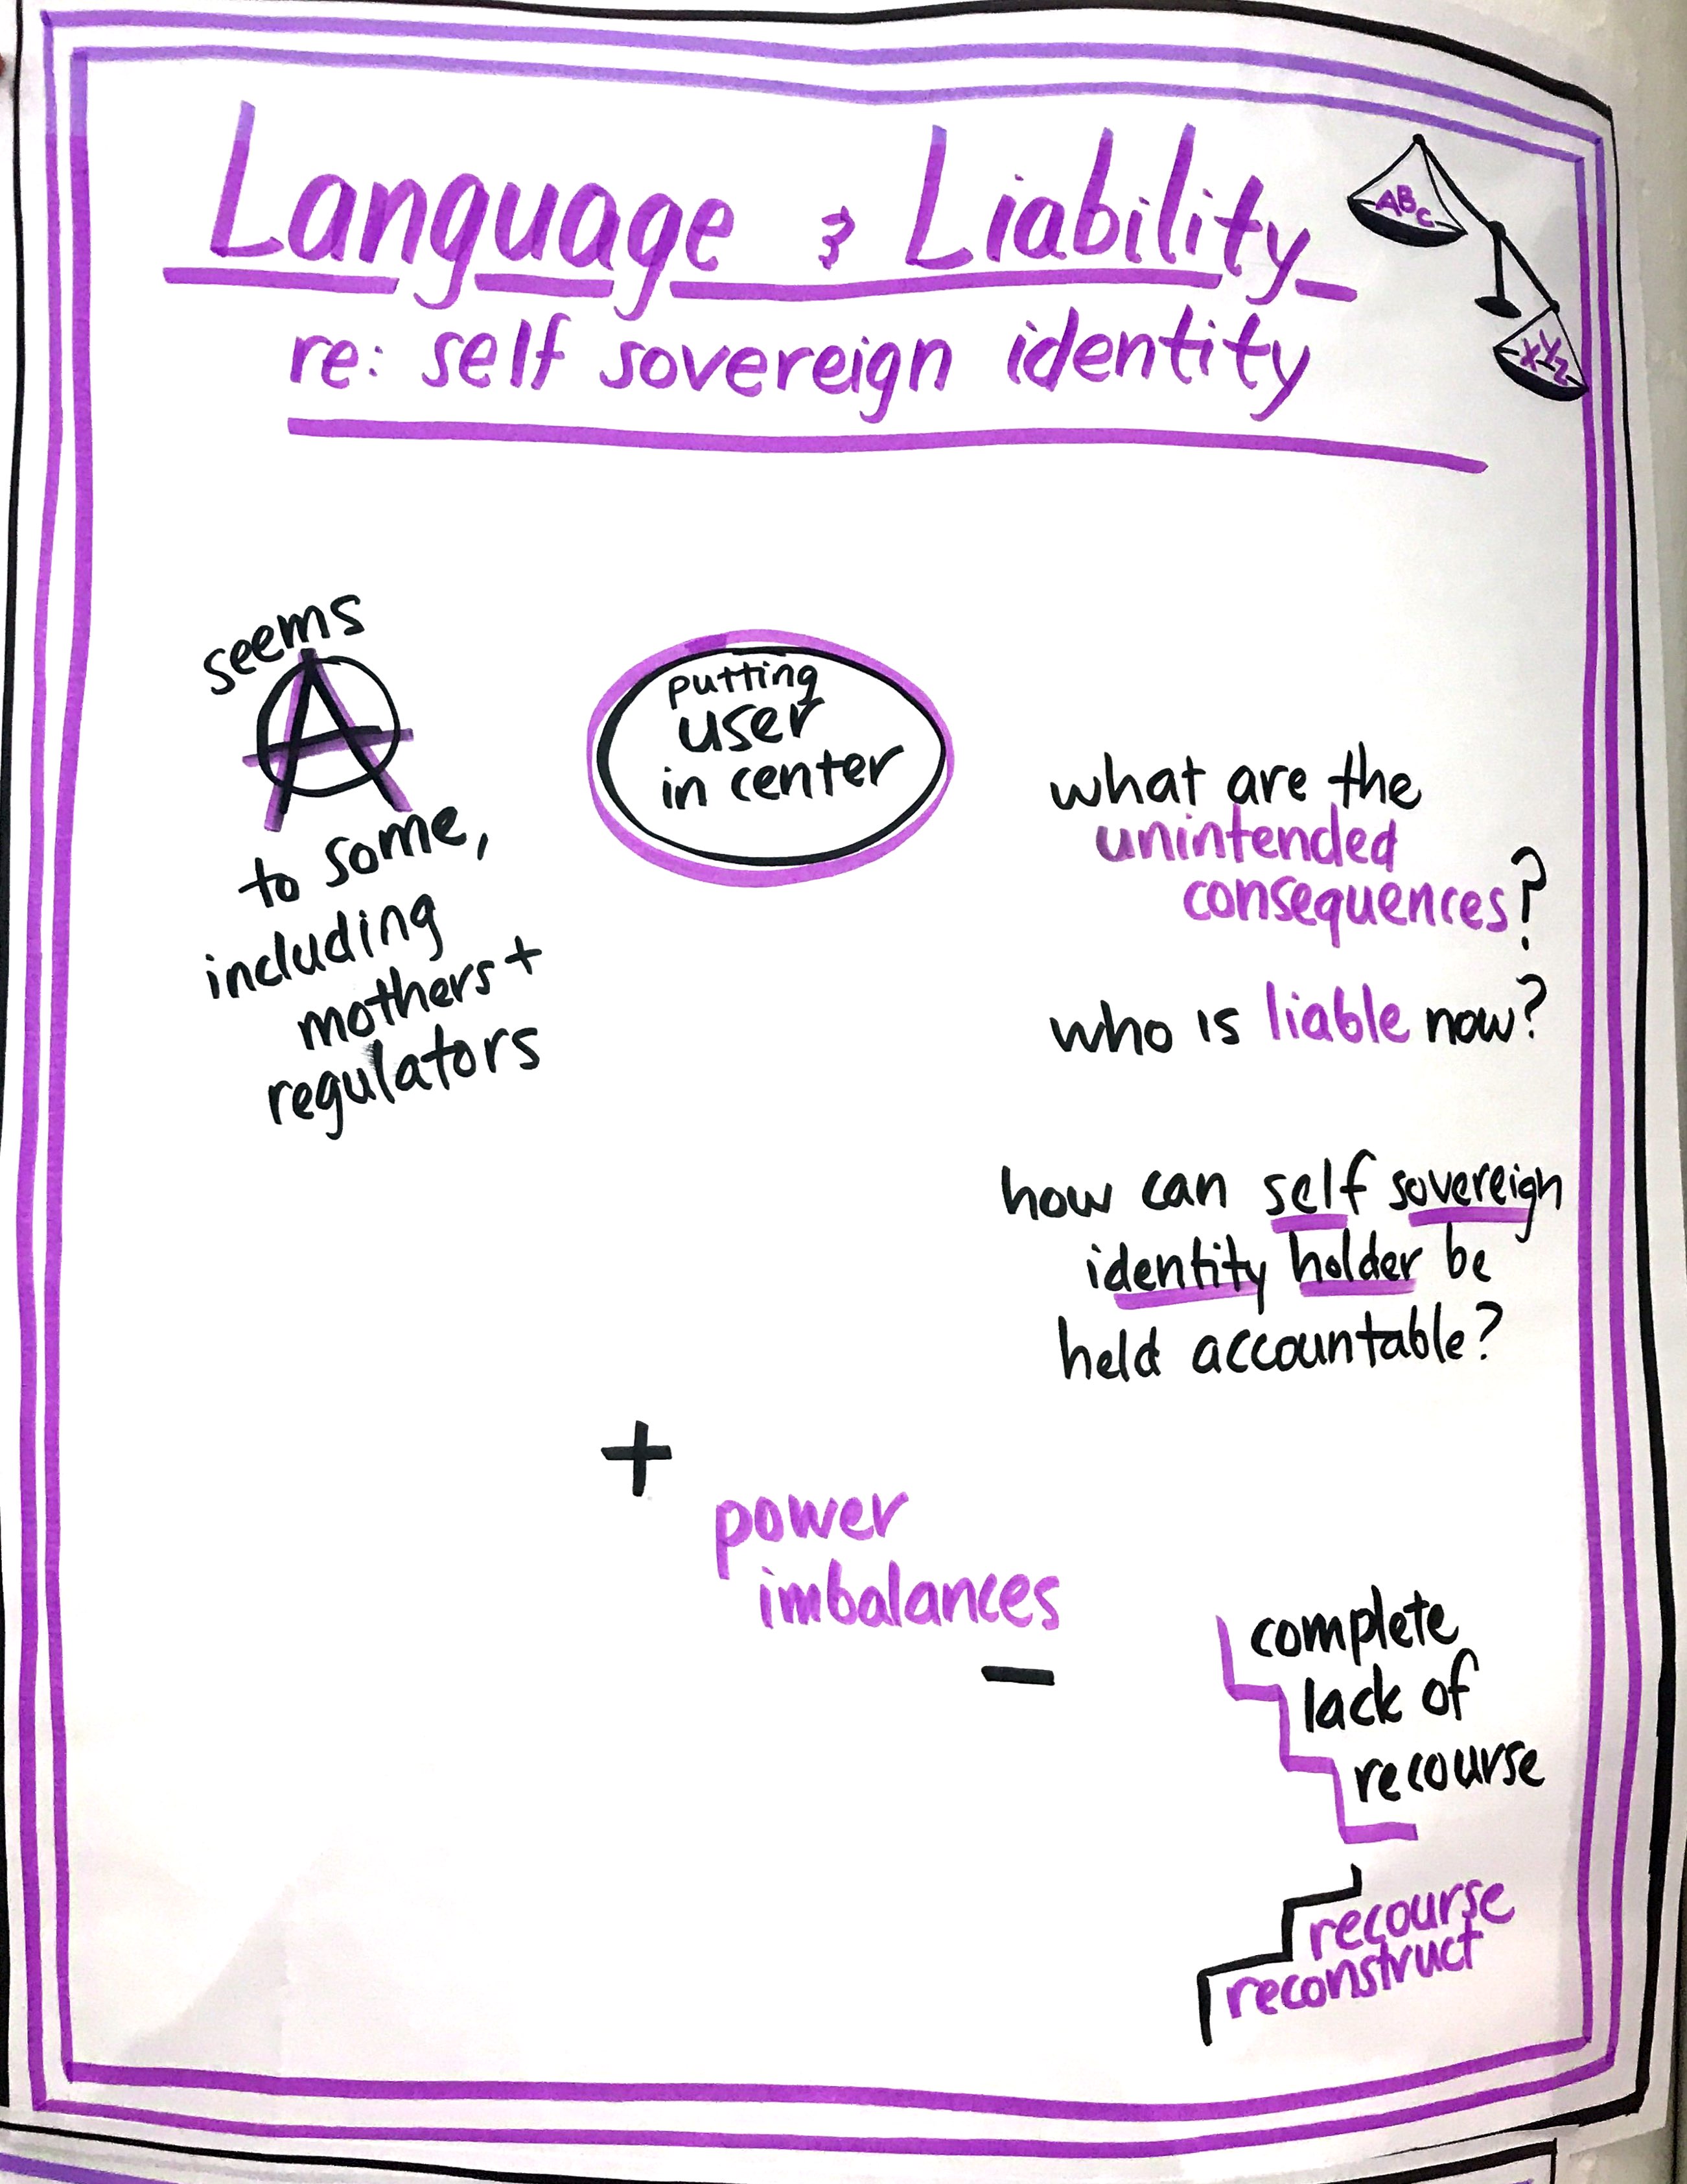 Language & Liability
re: self sovereign identity
ABC
XYZ
seems
A
to some,
including
mothers +
regulators
putting
user
in center
what are the
unintended
consequences?
who is liable now?
how can self sovereign
identity holder be
held accountable?
+
power
imbalances
-
complete
lack of
recourse
recourse
reconstruct